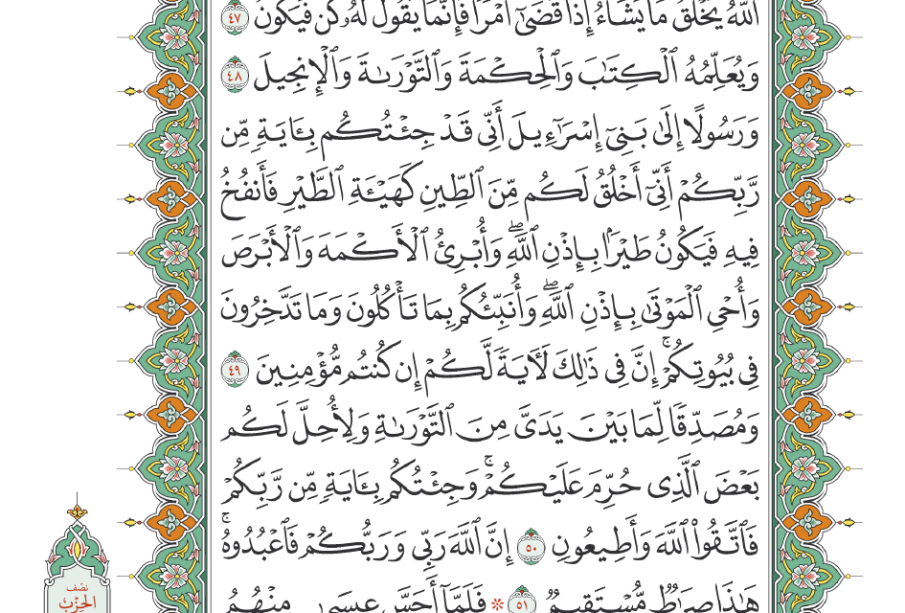 ٱللَّهُ يَخْلُقُ مَا يَشَآءُ إِذَا قَضَىٰٓ أَمْرًا فَإِنَّمَا يَقُولُ لَهُۥ كُن فَيَكُونُ ٤٧
وَيُعَلِّمُهُ ٱلْكِتَـٰبَ وَٱلْحِكْمَةَ وَٱلتَّوْرَىٰةَ وَٱلْإِنجِيلَ ٤٨
وَرَسُولًا إِلَىٰ بَنِىٓ إِسْرَٰٓءِيلَ أَنِّى قَدْ جِئْتُكُم بِـَٔايَةٍ مِّن
رَّبِّكُمْ أَنِّىٓ أَخْلُقُ لَكُم مِّنَ ٱلطِّينِ كَهَيْـَٔةِ ٱلطَّيْرِ فَأَنفُخُ
فِيهِ فَيَكُونُ طَيْرًۢا بِإِذْنِ ٱللَّهِ ۖ وَأُبْرِئُ ٱلْأَكْمَهَ وَٱلْأَبْرَصَ
وَأُحْىِ ٱلْمَوْتَىٰ بِإِذْنِ ٱللَّهِ ۖ وَأُنَبِّئُكُم بِمَا تَأْكُلُونَ وَمَا تَدَّخِرُونَ
فِى بُيُوتِكُمْ ۚ إِنَّ فِى ذَٰلِكَ لَـَٔايَةً لَّكُمْ إِن كُنتُم مُّؤْمِنِينَ ٤٩
وَمُصَدِّقًا لِّمَا بَيْنَ يَدَىَّ مِنَ ٱلتَّوْرَىٰةِ وَلِأُحِلَّ لَكُم
بَعْضَ ٱلَّذِى حُرِّمَ عَلَيْكُمْ ۚ وَجِئْتُكُم بِـَٔايَةٍ مِّن رَّبِّكُمْ
فَٱتَّقُوا۟ ٱللَّهَ وَأَطِيعُونِ ٥٠ إِنَّ ٱللَّهَ رَبِّى وَرَبُّكُمْ فَٱعْبُدُوهُ ۚ
هَـٰذَا صِرَٰطٌ مُّسْتَقِيمٌ ٥١ * فَلَمَّآ أَحَسَّ عِيسَىٰ مِنْهُمُ
نصف
الحزب